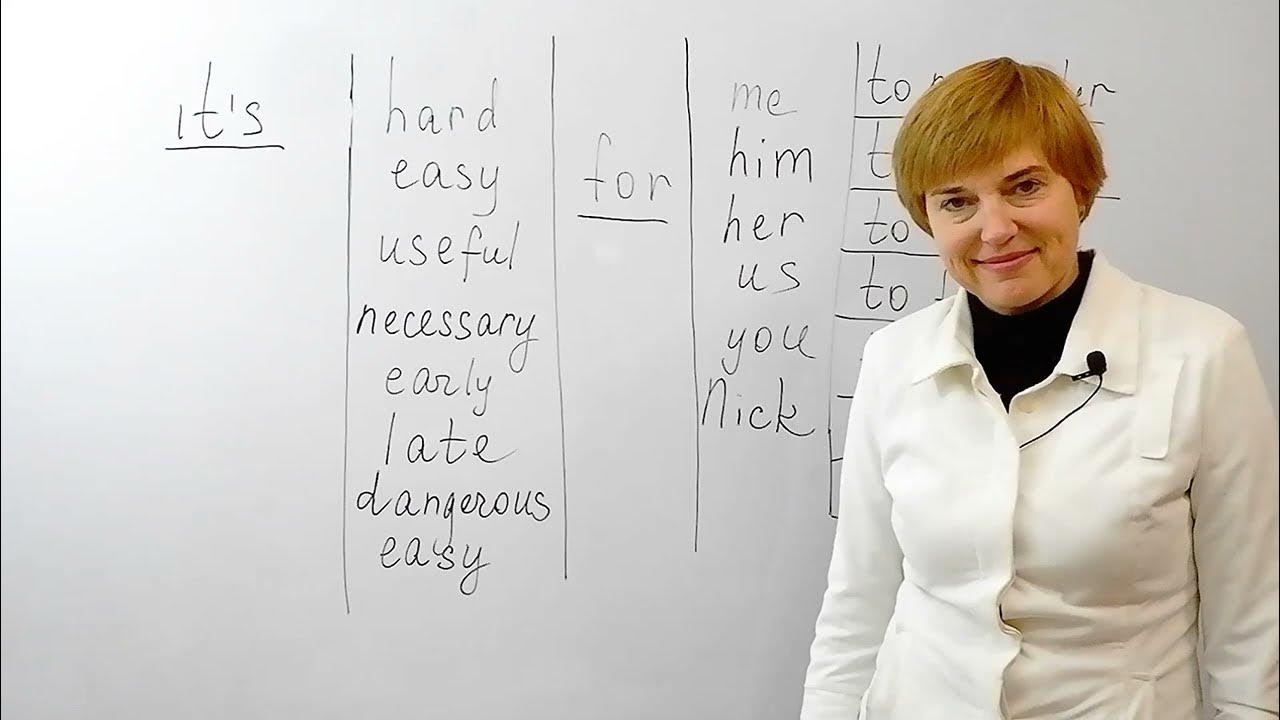 it's
hard
easy
useful
necessary
early
late
dangerous
easy
for
me
him
her
us
you
Nick
to
to
to